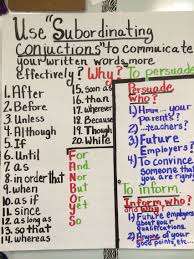 Use "Subordinating
Conjuctions" to commuicate
your written words more
effectively? Why? To persuade
1. After
2. Before
3. Unless
4. Although
5. If
6. Until
7. as
8. in order that
9. when
10. as if
11. since
12. as long as
13. so that
14. whereas
15. soon as
16. than
17. wherever
18. Whenever
19. Because
20. While
For
And
Nor
But
Or
Yet
So
Persuade
Who?
1) Hmm... your
Parents?
2) ...teachers?
3) Future
Employers?
4) To convince
someone that
you are right
To inform.
Inform who?
1) Future employers
about your
2) Anyone of your
good points, etc...